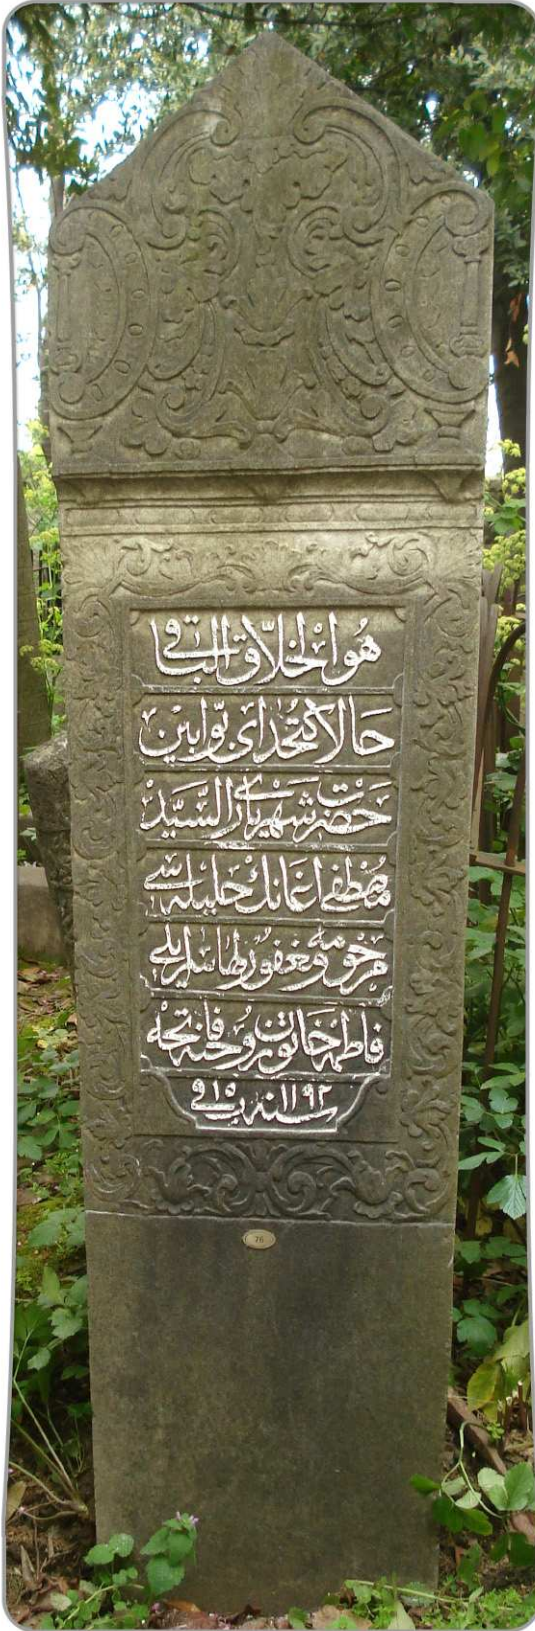 هو الخلاق الباقى
حالا كتخداى بوابين
حضرت شهريارى السيد
مصطفى اغانك حليله سى
مرحومه و مغفور لها
فاطمه خاتون روحنه فاتحه
سنه ١١٩٢ ب ١٥ فى
76